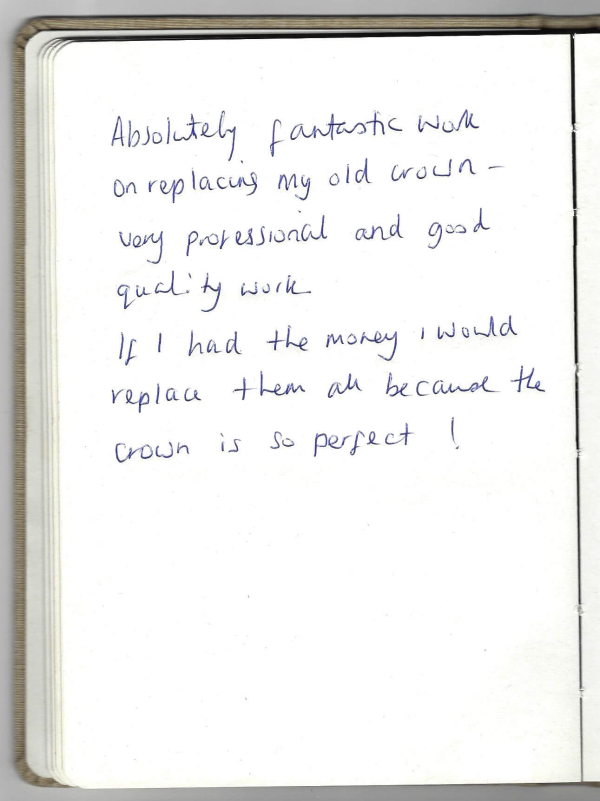 Absolutely fantastic work
on replacing my old crown –
very professional and good
quality work
If I had the money i would
replace them all because the
crown is so perfect !